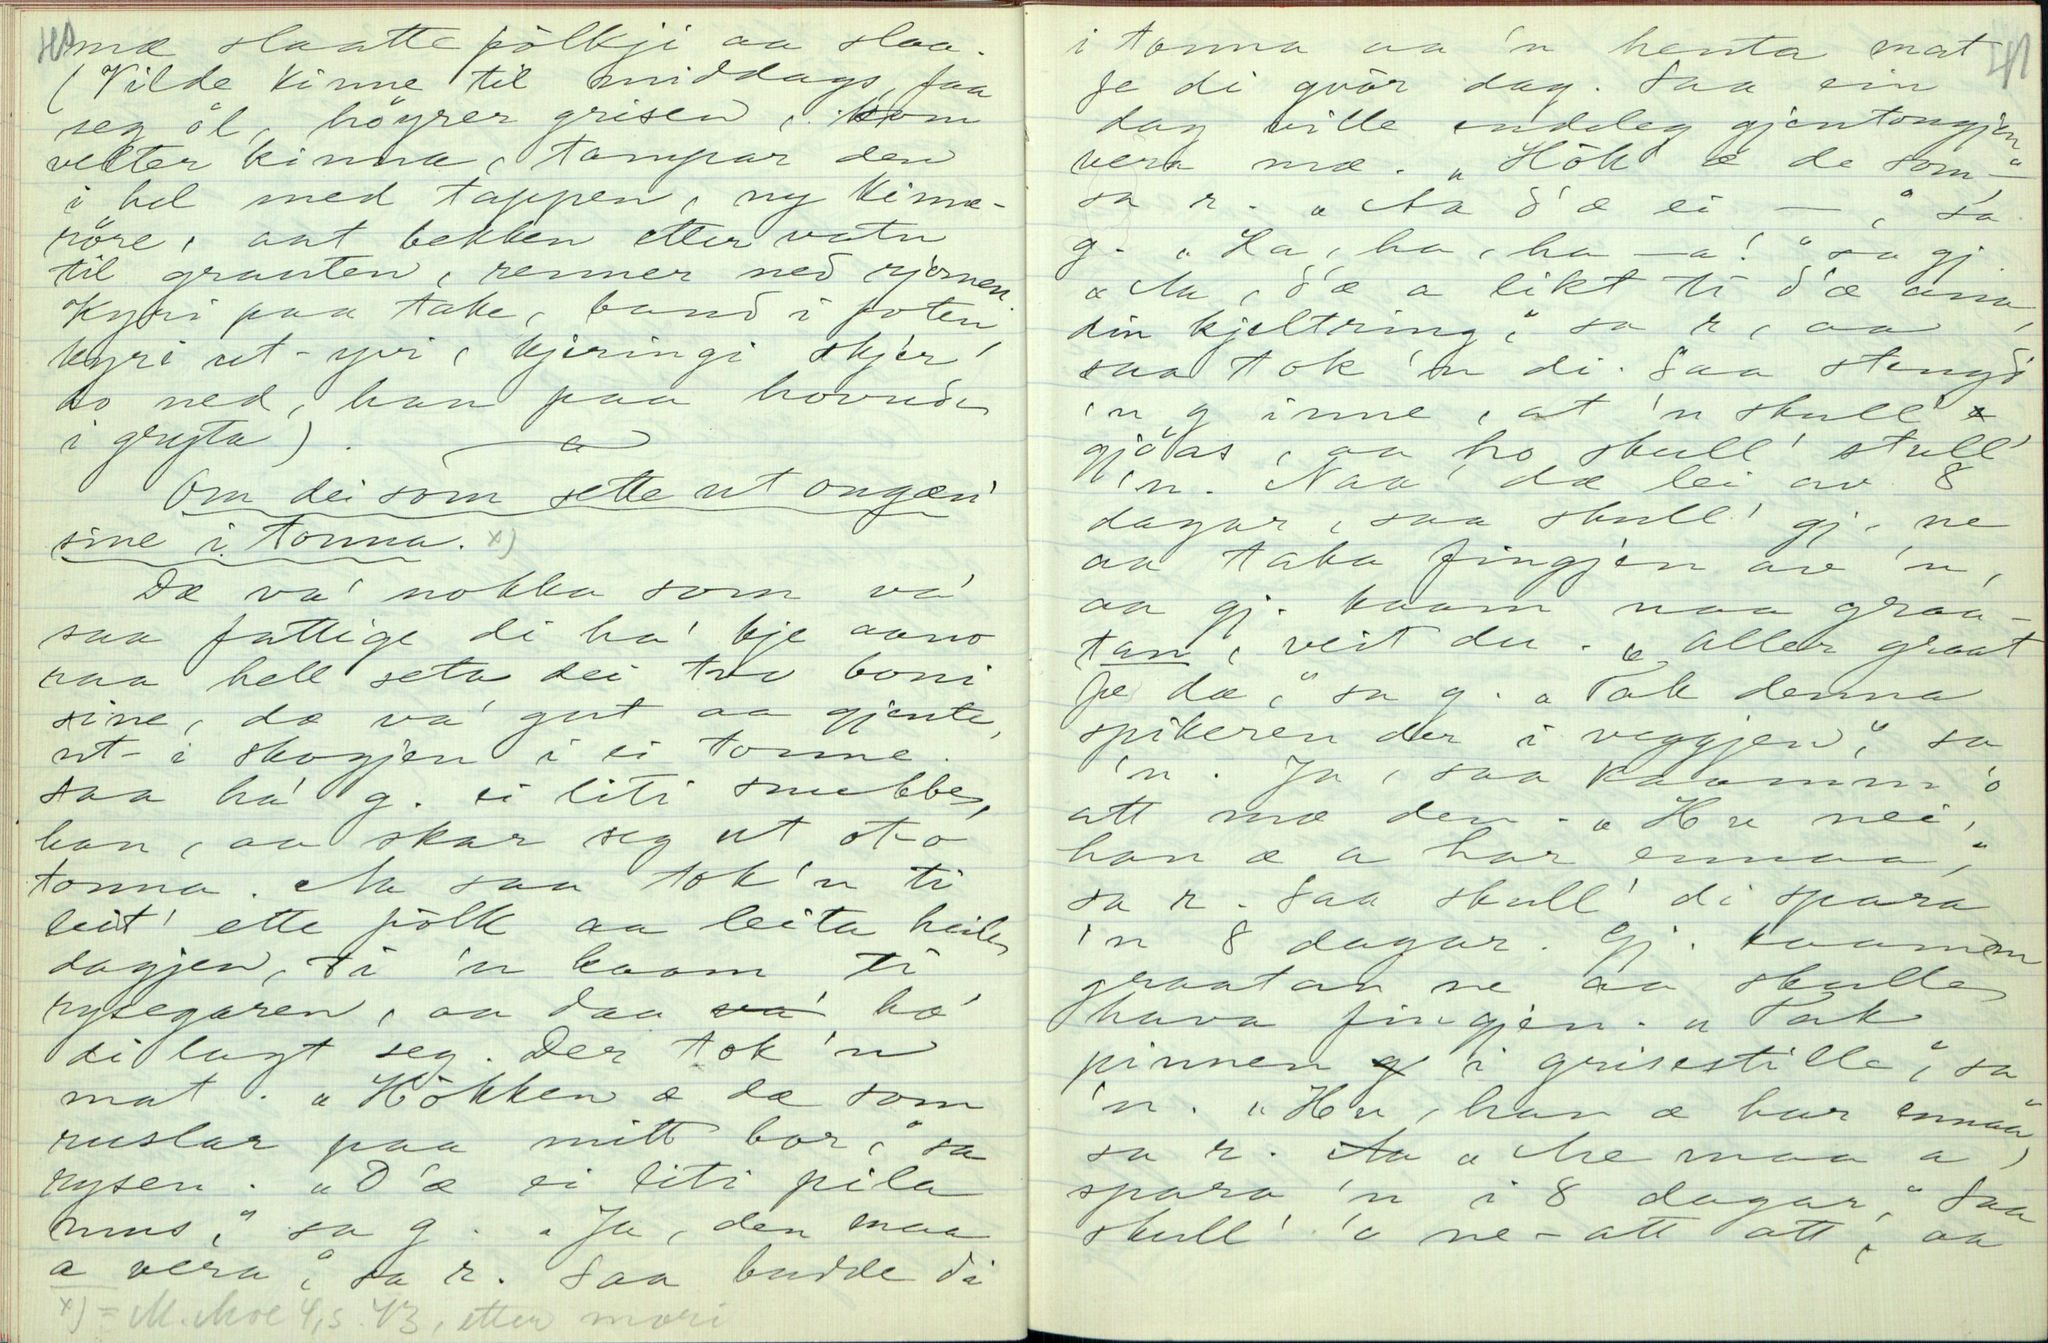 mæ slaatte fölkji aa slaa.
(Vilde kinne til middags, faa
seg öl, höyrer grisen, kom
velter kinna, tampar den
i hel med tappen, ny kinne-
röre, aat bekken etter vatn
til grauten, renner ned rjomen
Kyri paa take, band i foten
kyri ut-yvi, kjeringi skjer
ho ned, han paa hovude
i gryta).
Om dei som sette ut ongæn'
sine i tonna. x)
Dæ va' nokka som va'
saa fattige di ha' kje aano
raa hell seta dei tvo boni
sine, dæ va' gut aa gjente,
ut- i skogjen i ei tonne.
Saa ha' g. ei liti snubbe,
han, aa skar seg ut ot-o
tonna. Aa saa tok 'n ti
leit' ette fölk aa leita heile
dagjen, ti 'n kaam ti
rysegaren, aa daa va' ha'
di lagt seg. Der tok 'n
mat. "Hökken æ dæ som
ruslar paa mitt bor," sa
rysen. "D'æ ei liti pila
mus," sa g. "Ja, den maa
a vera," sa r. Saa budde di
x) = M. Moe 4, s. 43, etter mori
41
i tonna aa 'n henta mat
fe di gvör dag. Saa ein
dag ville enddeleg gjentongjen
vera mæ. "Hök æ de som –"
sa r. "Aa d'æ ei —," sa
g. "Ha, ha, ha –a!" sa gj.
"Aa, d'æ a likt ti d'æ ana,
din kjeltring," sa r, aa
saa tok 'n di. Saa stengd
'n g inne, at 'n skull'
gjöas, aa ho skull' stull'
'n. Naa dæ lei av 8
dagar, saa skull' gj. ne
aa taka fingjen av 'n,
aa gj. kaam naa graa-
tan, veit du. "Aller graat
fe dæ," sa g. "Tak denna
spikeren der i veggjen," sa
'n. Ja, saa kaamm 'o
att mæ den. "Hu nei,
han æ a har ennaa,"
sa r. Saa skull' di spara
'n 8 dagar. Gj. kaamm
graatan ne aa skulle
hava fingjen. "Tak
pinnen i grisestille," sa
'n. "Hu, han æ har ennaa,"
sa r. "Me maa a
spara 'n i 8 dagar." Saa
skull' 'o ne-att att, aa